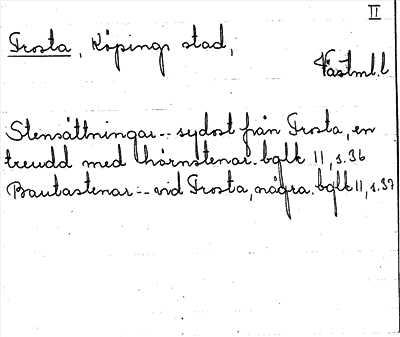 II
Trosta, Köpings stad,
Västml.l
Stensättningar -- sydost från Trosta, en
treudd med hörnstenar. bglk 11, s.36
Bautastenar -- vid Trosta, några. bglk 11, s.37